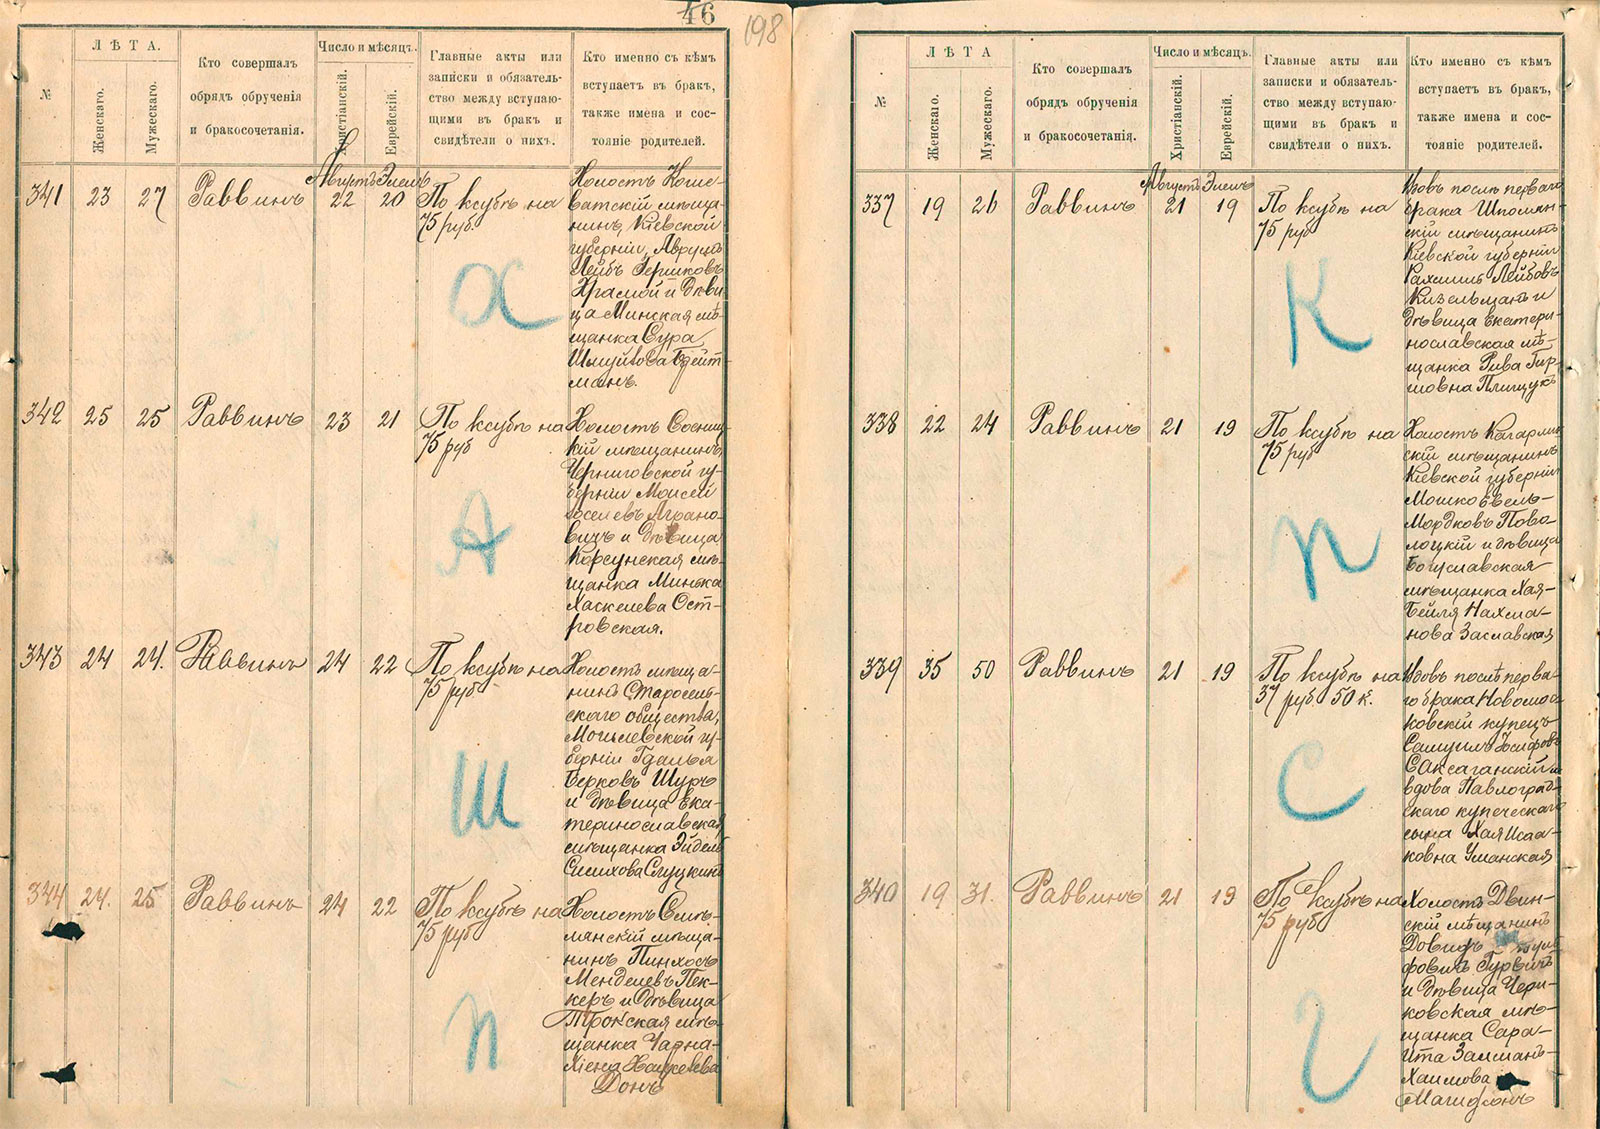 46
198
№
ЛѢТА.
Женскаго.
Мужескаго.
Кто совершалъ
обрядъ обрученія
и бракосочетанія.
Число и мѣсяцъ.
Христіанскій.
Еврейскій.
Главные акты или
записки и обязатель-
ство между вступаю-
щими въ бракъ и
свидѣтели о нихъ.
Кто именно съ кѣмъ
вступаетъ въ бракъ,
также имена и сос-
тояніе родителей.
341 23 27 Раввинъ
Августъ Элелъ
22 20
По ксубѣ на
75 руб.
Холостъ Коше-
ватскій мѣща-
нинъ, Кіевской
губерніи, Аврумъ
Лейбъ Гершковъ
Храмой и дѣви-
ца Минская мѣ-
щанка Сура
Шмуйлова
манъ.
Х
342 25 25 Раввинъ 23 21
По ксубѣ на
75 руб
Холостъ Сосниц-
кій мѣщанинъ,
Черниговской гу-
берніи Моисей
Іоселевъ Аграно-
вичъ и дѣвица
Корсунская мѣ-
щанка Минька
Хаскелева Ост-
ровская.
А
343 24 24. Раввинъ 24 22
По ксубѣ на
75 руб
Холостъ мѣща-
нинъ Старосель-
скаго общества,
Могилевской гу-
берніи Гдалья
Берковъ Шуръ
и дѣвица Ека-
теринославская
мѣщанка Эйдель
Симхова Слуцкинъ
Ш
344 24. 25 Раввинъ 24 22
По ксубѣ на
75 руб
Холостъ Смѣ-
лянскій мѣща-
нинъ Пинхосъ
Менделевъ Пек-
керъ и дѣвица
Трокская мѣ-
щанка Чарна-
Хіена
Донъ
П
№
ЛѢТА
Женскаго.
Мужескаго.
Кто совершалъ
обрядъ обрученія
и бракосочетанія.
Число и мѣсяцъ.
Христіанскій.
Еврейскій.
Главные акты или
записки и обязатель-
ство между вступаю-
щими въ бракъ и
свидѣтели о нихъ.
Кто именно съ кѣмъ
вступаетъ въ бракъ,
также имена и сос-
тояніе родителей.
337 19 26 Раввинъ
Августъ Элелъ
21 19
По ксубѣ на
75 руб
Вдовъ послѣ перваго
брака Шполян-
скій мѣщанинъ
Кіевской губерніи
Рахмиль Лейбовъ
Кизельманъ и
дѣвица Екатери-
нославская мѣ-
щанка Рива Гир-
шовна Плищукъ
К
338 22 24 Раввинъ 21 19
По ксубѣ на
75 руб
Холостъ Кагарлик-
скій мѣщанинъ
Кіевской губерніи
Мошко Вель-
Мордковъ Пово-
лоцкій и дѣвица
Богуславская
мѣщанка Хая-
Бейля Нахма-
нова Заславская
П
339 35 50 Раввинъ 21 19
По ксубѣ на
37 руб. 50 к.
Вдовъ послѣ перва-
го брака Новомос-
ковскій купецъ
Самуилъ Іосифовъ
Саксаганскій и
вдова Павлоград-
скаго купеческаго
сына Хая Исаа-
ковна Уманская
С
340 19 31. Раввинъ 21 19
По ксубѣ на
75 руб
Холостъ Двин-
скій мѣщанинъ
Довидъ
фовичъ Гурвичъ
и дѣвица Чери-
ковская мѣ-
щанка Сара-
Ита Залманъ-
Хаимова
Магидсонъ
Г